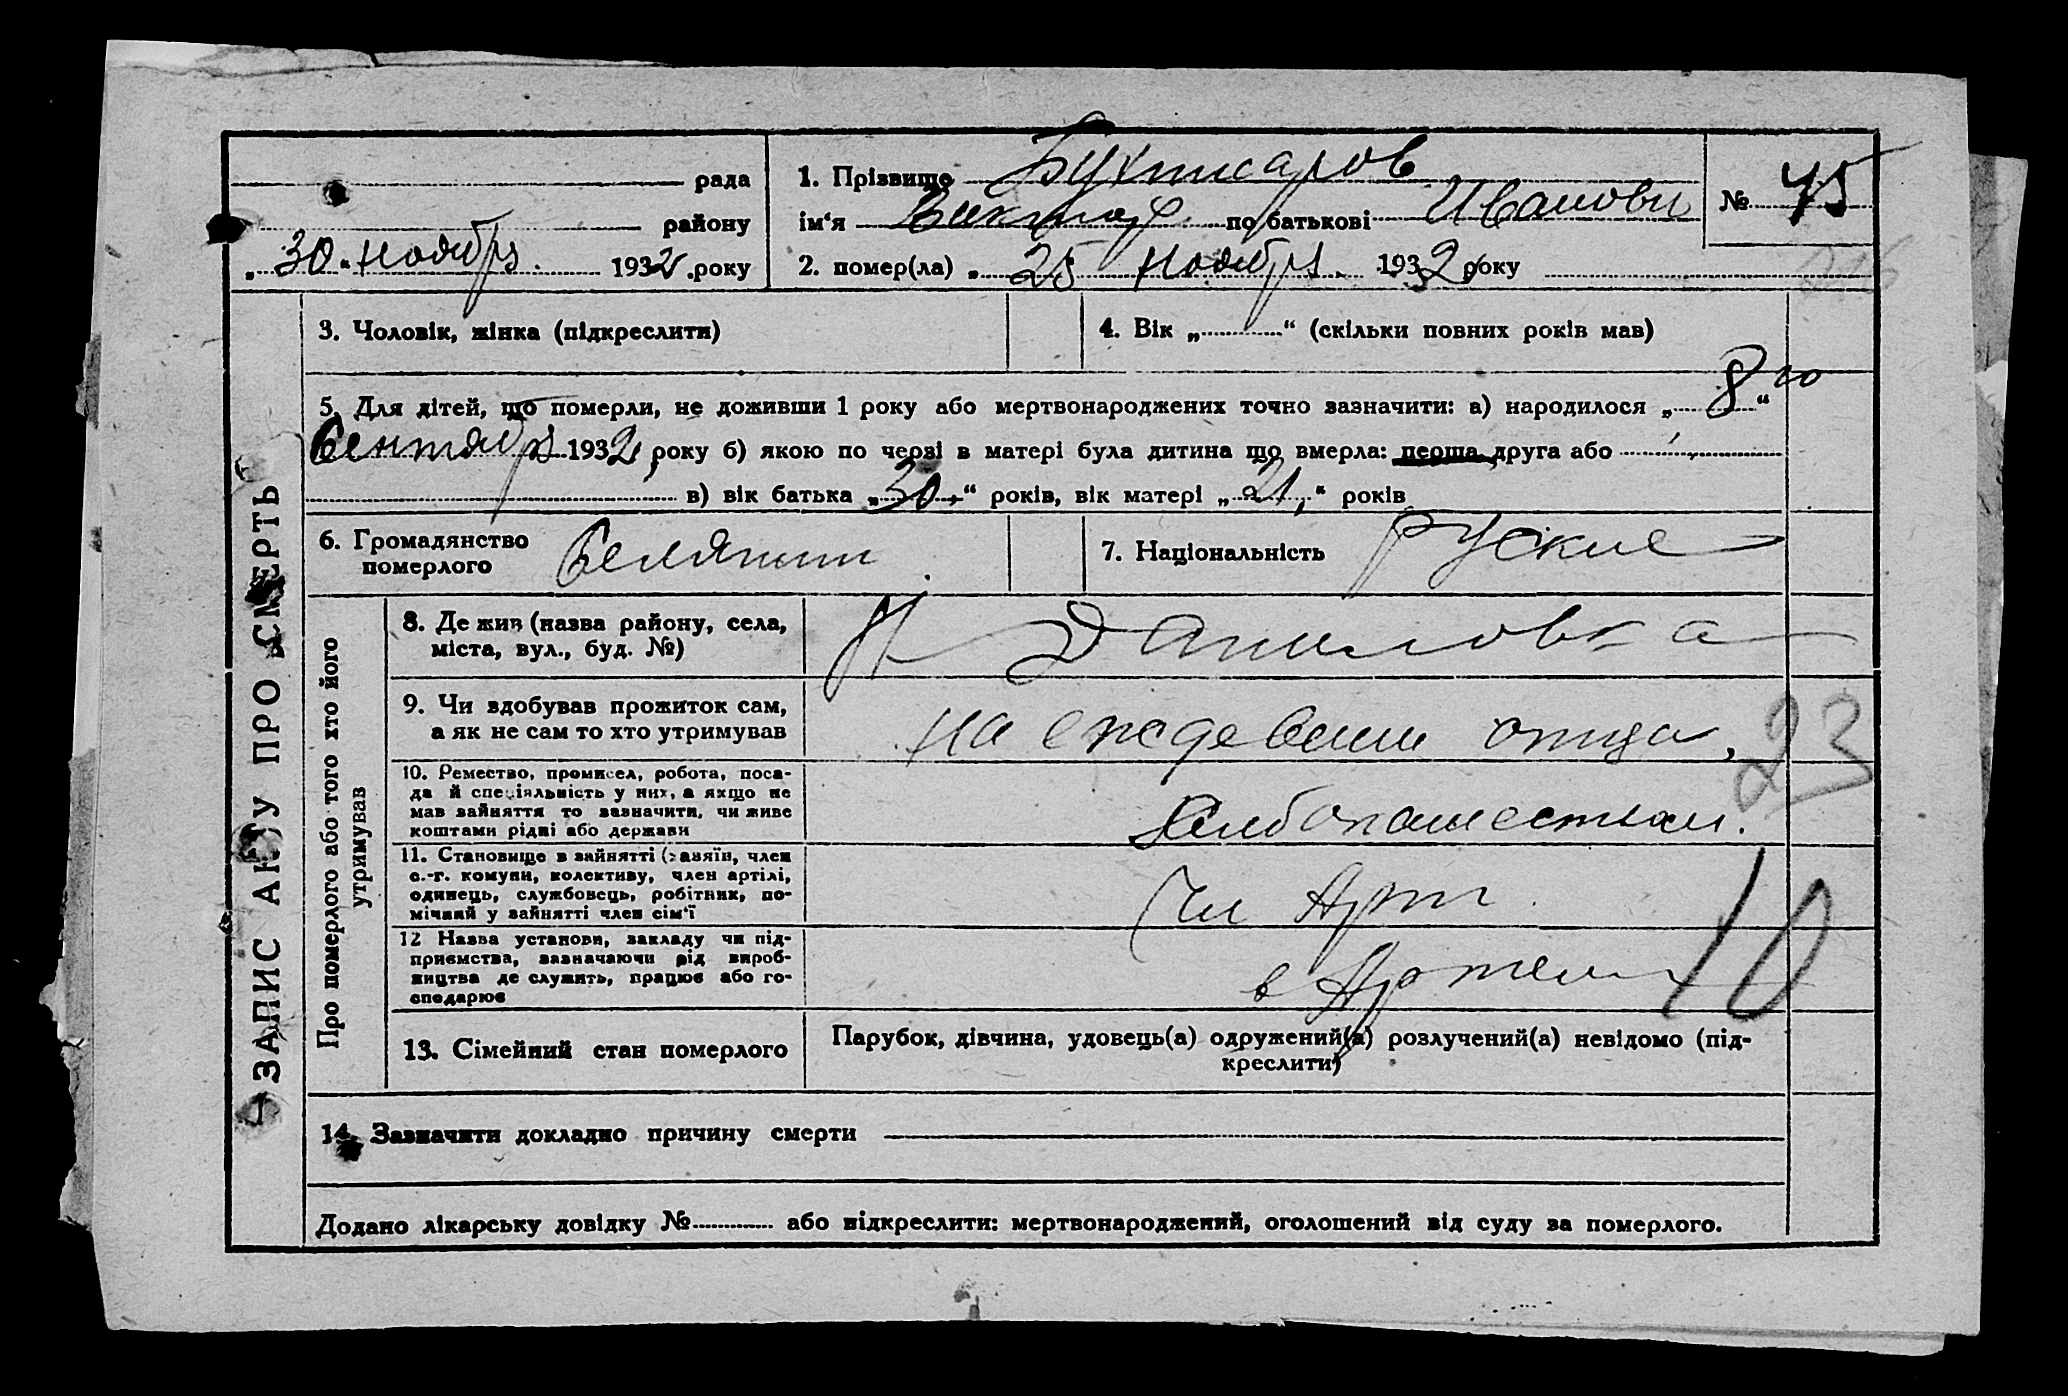 ЗАПИС АКТУ ПРО СМЕРТЬ
рада
району
„30“ ноября 1932 .року
1. Прізвище Бухтиаров
ім‘я Виктор по батькові Иванови
№ 45
2. помер(ла) „ 25 ноября 1932 року
3. Чоловік, жінка (підкреслити)
4. Вік „ “ (скільки повних років мав)
5. Для дітей, що померли, не доживши 1 року або мертвонароджених точно зазначити: а) народилося „ 8 “ го
Сентября 1932 року б) якою по черзі в матері була дитина що вмерла: перша друга або
в) вік батька „ 30 “ років, вік матері „ 21 “ років
6. Громадянство
померлого
Селянин
7. Національність Руские
Про померлого або того хто його
утримував
8. Де жив (назва району, села,
міста, вул., буд. №)
Н Даниловка
9. Чи здобував прожиток сам,
а як не сам то хто утримував
на иждевении отца,
23
10. Ремество, промисел, робота, поса-
да й спеціяльність у них, а якщо не
мав зайняття то зазначити, чи живе
коштами рідні або держави
Хлебопашеством.
11. Становище в зайнятті (хазяїн, член
с.-г. комуни, колективу, член артілі,
одинець, службовець, робітник, по-
мічний у зайнятті член сім‘ї
Чл Арт
12 Назва установи, закладу чи під-
приємства, зазначаючи рід вироб-
ництва де служить, працює або го-
сподарює
в Артели
10
13. Сімейний стан померлого
Парубок, дівчина, удовець(а) одружений(а) розлучений(а) невідомо (під-
креслити)
14. Зазначити докладно причину смерти
Додано лікарську довідку № або підкреслити: мертвонароджений, оголошений від суду за померлого.